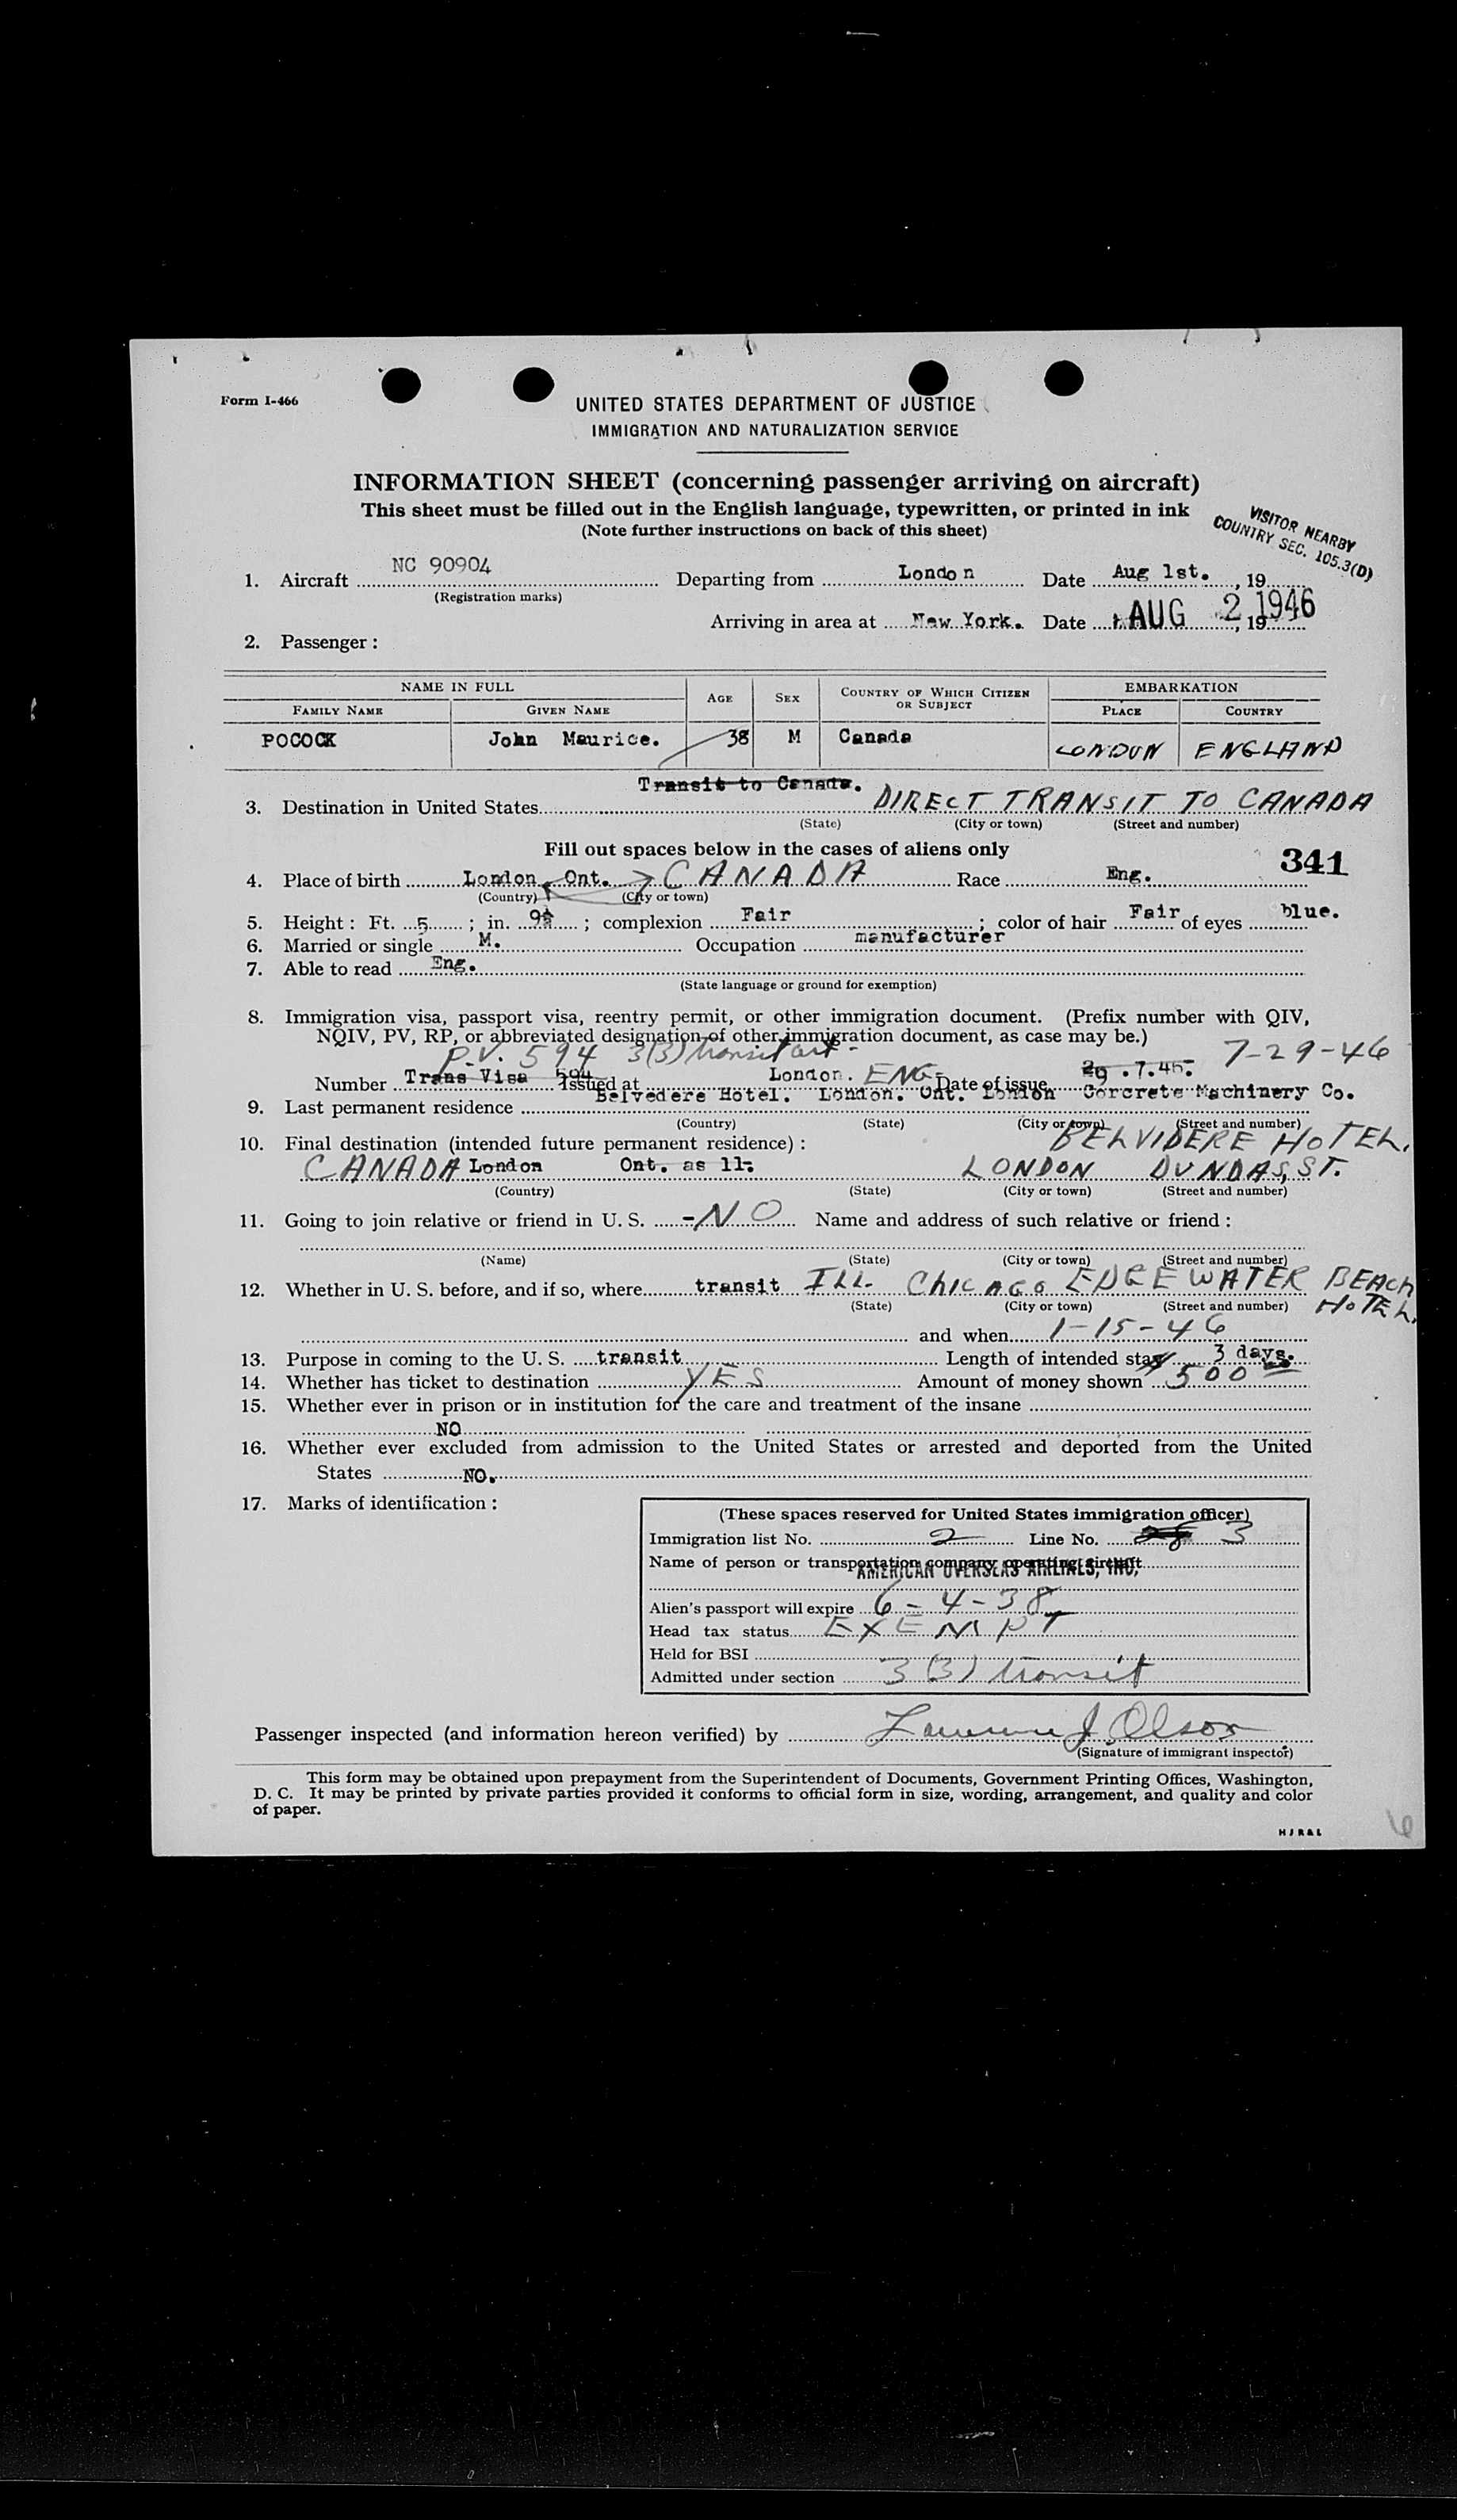 Form I-466
UNITED STATES DEPARTMENT OF JUSTICE
IMMIGRATION AND NATURALIZATION SERVICE
INFORMATION SHEET (concerning passenger arriving on aircraft)
This sheet must be filled out in the English language, typewritten, or printed in ink
(Note further instructions on back of this sheet)
VISITOR NEARBY
COUNTRY SEC. 105.3(D)
1. Aircraft NC 90904 Departing from London Date Aug 1st. , 19
(Registration marks)
Arriving in area at New York. Date AUG 2 1946 , 19
2. Passenger :
NAME IN FULL AGE SEX COUNTRY OF WHICH CITIZEN OR SUBJECT EMBARKATION
FAMILY NAME GIVEN NAME PLACE COUNTRY
POCOCK John Maurice. 38 M Canada LONDON ENGLAND
Transit to Canada.
3. Destination in United States DIRECT TRANSIT TO CANADA
(State) (City or town) (Street and number)
Fill out spaces below in the cases of aliens only
341
4. Place of birth London, Ont. CANADA Race Eng.
(Country) (City or town)
5. Height : Ft. 5 ; in. 9½ ; complexion Fair ; color of hair Fair of eyes blue.
6. Married or single M. Occupation manufacturer
7. Able to read Eng.
(State language or ground for exemption)
8. Immigration visa, passport visa, reentry permit, or other immigration document. (Prefix number with QIV,
NQIV, PV, RP, or abbreviated designation of other immigration document, as case may be.)
P.V. 594 3(3) transit 7-29-46
Number Trans Visa 594 Issued at London. ENG. Date of issue 29 .7.46.
9. Last permanent residence Belvedere Hotel. London. Ont. London Concrete Machinery Co.
(Country) (State) (City or town) (Street and number)
10. Final destination (intended future permanent residence) : BELVIDERE HOTEL.
CANADA London Ont. as 11. LONDON DUNDAS, ST.
(Country) (State) (City or town) (Street and number)
11. Going to join relative or friend in U. S. -NO Name and address of such relative or friend :
(Name) (State) (City or town) (Street and number)
12. Whether in U. S. before, and if so, where transit ILL. ChICAGO EDGEWATER BEACH
(State) (City or town) (Street and number) HOTEL.
and when 1-15-46
13. Purpose in coming to the U. S. transit Length of intended stay 3 days.
14. Whether has ticket to destination YES Amount of money shown 500
15. Whether ever in prison or in institution for the care and treatment of the insane
NO
16. Whether ever excluded from admission to the United States or arrested and deported from the United
States NO.
17. Marks of identification :
(These spaces reserved for United States immigration officer)
Immigration list No. 2 Line No. 3
Name of person or transportation company operating aircraft
AMERICAN OVERSEAS AIRLINES, INC,
Alien's passport will expire 6-4-38
Head tax status EXEMPT
Held for BSI
Admitted under section 3(3) transit
Passenger inspected (and information hereon verified) by Lawrence J Olson
(Signature of immigrant inspector)
This form may be obtained upon prepayment from the Superintendent of Documents, Government Printing Offices, Washington,
D. C. It may be printed by private parties provided it conforms to official form in size, wording, arrangement, and quality and color
of paper.
HJR&L
6